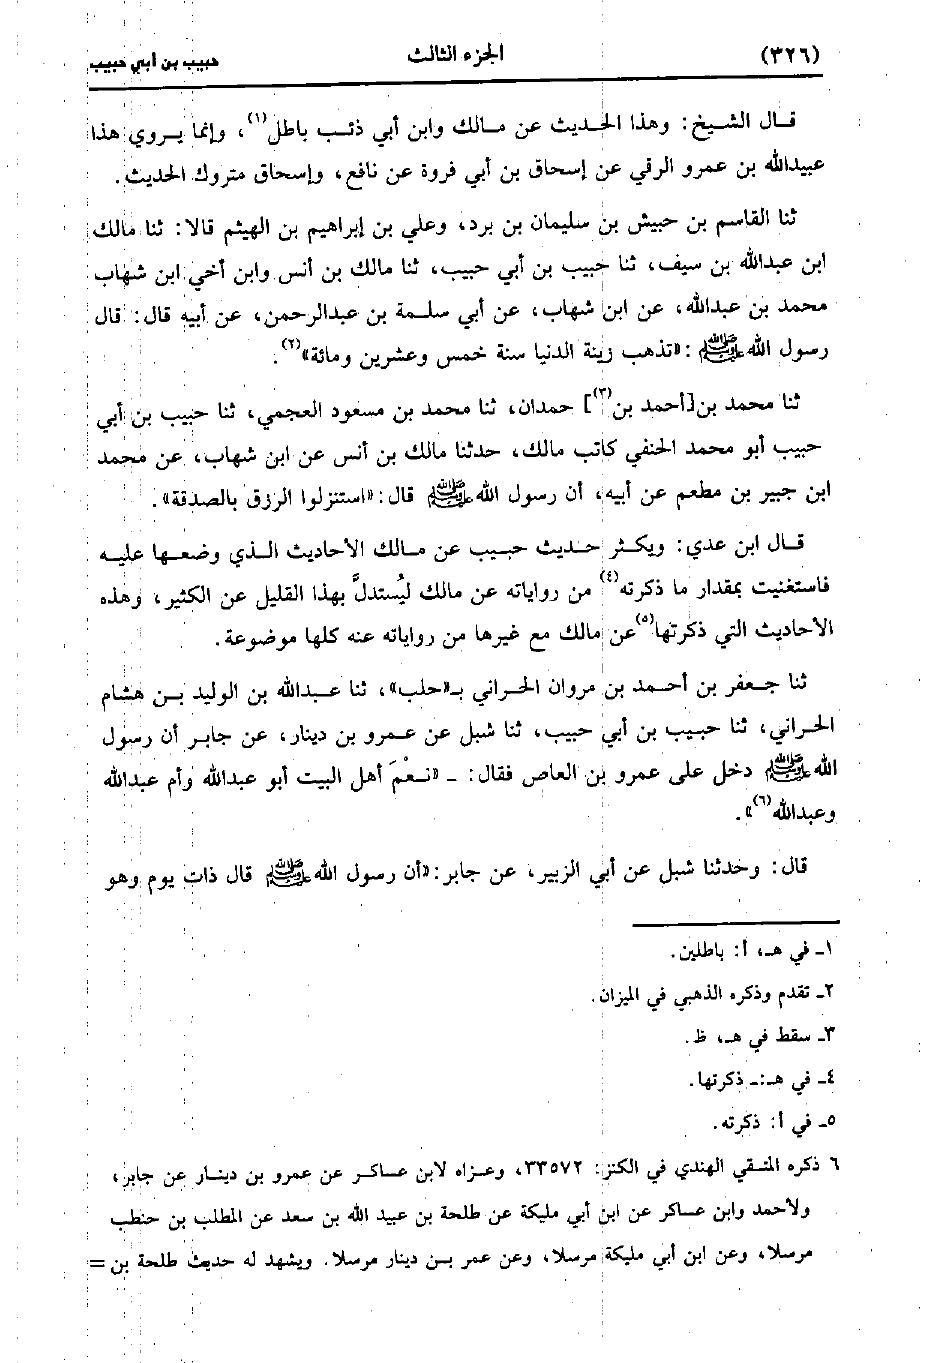 (٣٢٦) الجزء الثالث حبيب بن أبي حبيب
قال الشيخ: وهذا الحديث عن مالك وابن أبي ذئب باطل(١)، وإنما يروي هذا
عبيدالله بن عمرو الرقي عن إسحاق بن أبي فروة عن نافع، وإسحاق متروك الحديث.
ثنا القاسم بن حبيش بن سليمان بن برد، وعلي بن إبراهيم بن الهيثم قالا: ثنا مالك
ابن عبدالله بن سيف، ثنا حبيب بن أبي حبيب، ثنا مالك بن أنس وابن أخي ابن شهاب
محمد بن عبدالله، عن ابن شهاب، عن أبي سلمة بن عبدالرحمن، عن أبيه قال: قال
رسول الله ﷺ: «تذهب زينة الدنيا سنة خمس وعشرين ومائة»(٢).
ثنا محمد بن[أحمد بن(٣)] حمدان، ثنا محمد بن مسعود العجمي، ثنا حبيب بن أبي
حبيب أبو محمد الحنفي كاتب مالك، حدثنا مالك بن أنس عن ابن شهاب، عن محمد
ابن جبير بن مطعم عن أبيه، أن رسول الله ﷺ قال: «استنزلوا الرزق بالصدقة».
قال ابن عدي: ويكثر حديث حبيب عن مالك الأحاديث الذي وضعها عليه
فاستغنيت بمقدار ما ذكرته(٤) من رواياته عن مالك ليُستدلَّ بهذا القليل عن الكثير، وهذه
الأحاديث التي ذكرتها(٥) عن مالك مع غيرها من رواياته عنه كلها موضوعة.
ثنا جعفر بن أحمد بن مروان الحراني بـ«حلب»، ثنا عبدالله بن الوليد بن هشام
الحراني، ثنا حبيب بن أبي حبيب، ثنا شبل عن عمرو بن دينار، عن جابر أن رسول
الله ﷺ دخل على عمرو بن العاص فقال: ـ «نعْمَ أهل البيت أبو عبدالله وأم عبدالله
وعبدالله(٦)».
قال: وحدثنا شبل عن أبي الزبير، عن جابر: «أن رسول الله ﷺ قال ذات يوم وهو
١ـ في هـ، أ: باطلين.
٢ـ تقدم وذكره الذهبي في الميزان.
٣ـ سقط في هـ، ظ.
٤ـ في هـ:ـ ذكرتها.
٥ـ في أ: ذكرته.
٦ ذكره المتقي الهندي في الكنز: ٣٣٥٧٢، وعزاه لابن عساكر عن عمرو بن دينار عن جابر،
ولأحمد وابن عساكر عن ابن أبي مليكة عن طلحة بن عبيد الله بن سعد عن المطلب بن حنطب
مرسلا، وعن ابن أبي مليكة مرسلا، وعن عمر بن دينار مرسلا. ويشهد له حديث طلحة بن =